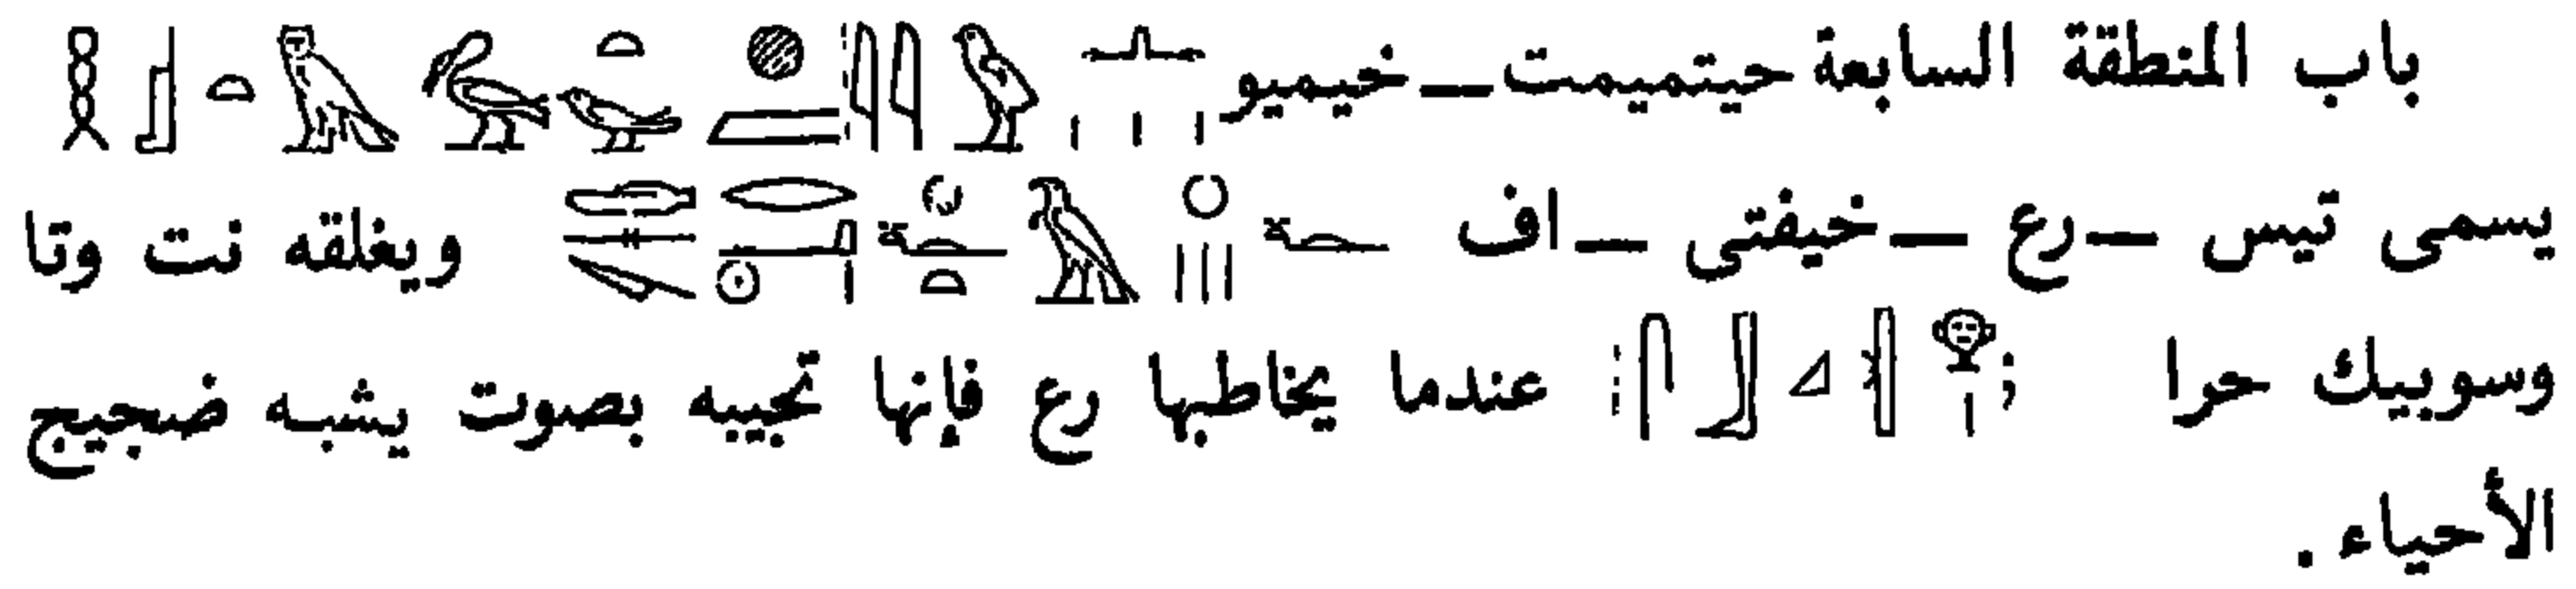 باب المنطقة السابعة حيتميمت ـ خيميو
يسمى تيس ـ رع ـ خيفتى ـ اف ويغلقه نت وتا
وسوبيك حرا ; عندما يخاطبها رع فإنها تجيبه بصوت يشبه ضجيج
الأحياء .